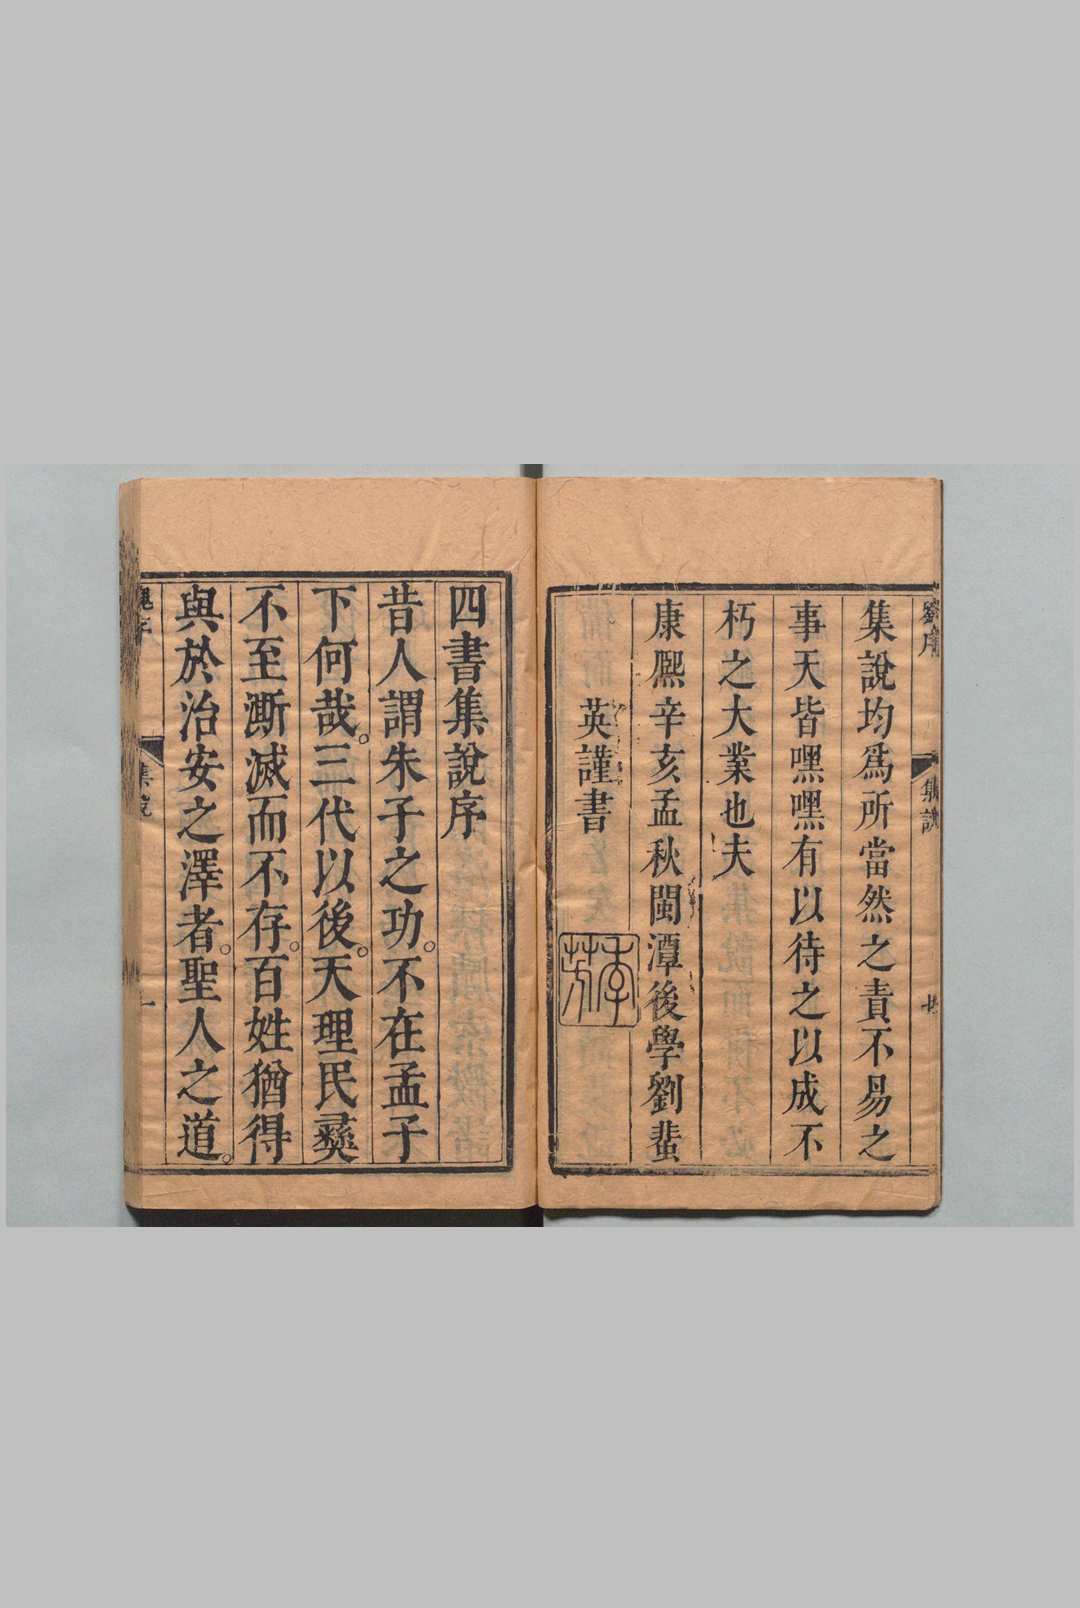 集說均爲所當然之責不易之
事天皆嘿嘿有以待之以成不
朽之大業也夫
康熈辛亥孟秋閩潭後學劉蜚
英謹書
季芳
劉序
集說
四書集說序
昔人謂朱子之功。不在孟子
下何哉。三代以後。天理民彞
不至澌滅而不存。百姓猶得
與於治安之澤者。聖人之道。
集說
一